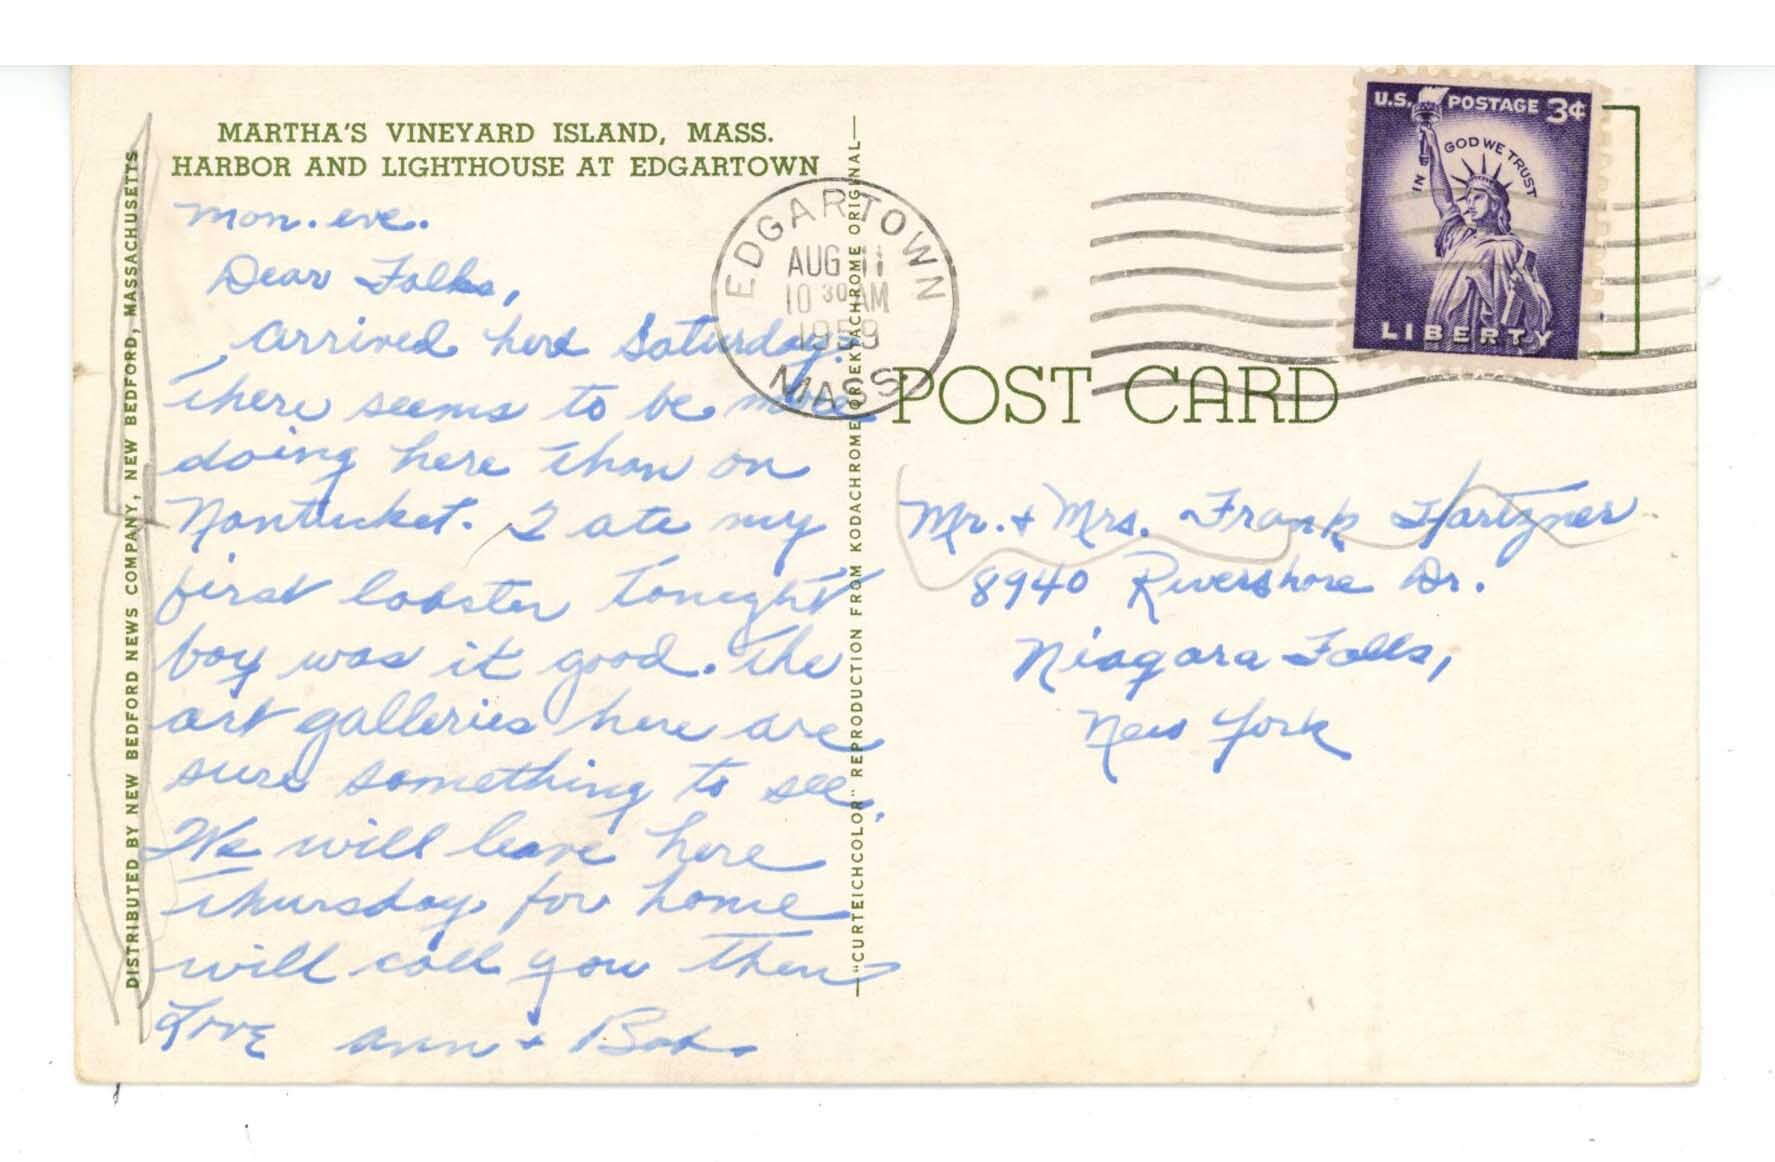 MARTHA'S VINEYARD ISLAND, MASS.
HARBOR AND LIGHTHOUSE AT EDGARTOWN
Mon. eve.
Dear Folks,
Arrived here Saturday.
There seems to be more
doing here than on
Nantucket. I ate my
first lobster tonight
boy was it good. The
art galleries here are
sure something to see.
We will leave here
Thursday for home
will call you then
Love Ann + Bob.
DISTRIBUTED BY NEW BEDFORD NEWS COMPANY, NEW BEDFORD, MASSACHUSETTS
"CURTEICHCOLOR" REPRODUCTION FROM KODACHROME OR EKTACHROME ORIGINAL
EDGARTOWN
AUG 11
10 30 AM
1959
MASS.
U.S. POSTAGE 3¢
IN GOD WE TRUST
LIBERTY
POST CARD
Mr. + Mrs. Frank Hartzner
8940 Rivershore Dr.
Niagara Falls,
New York